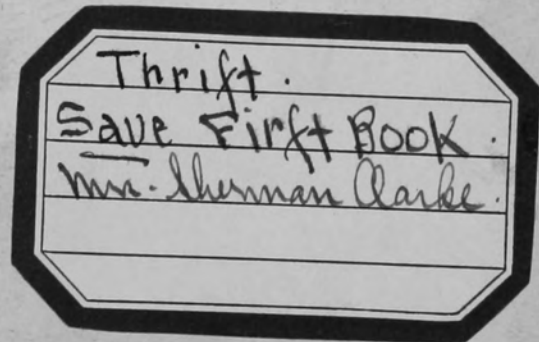 Thrift.
Save First Book.
Mrs. Sherman Clarke.